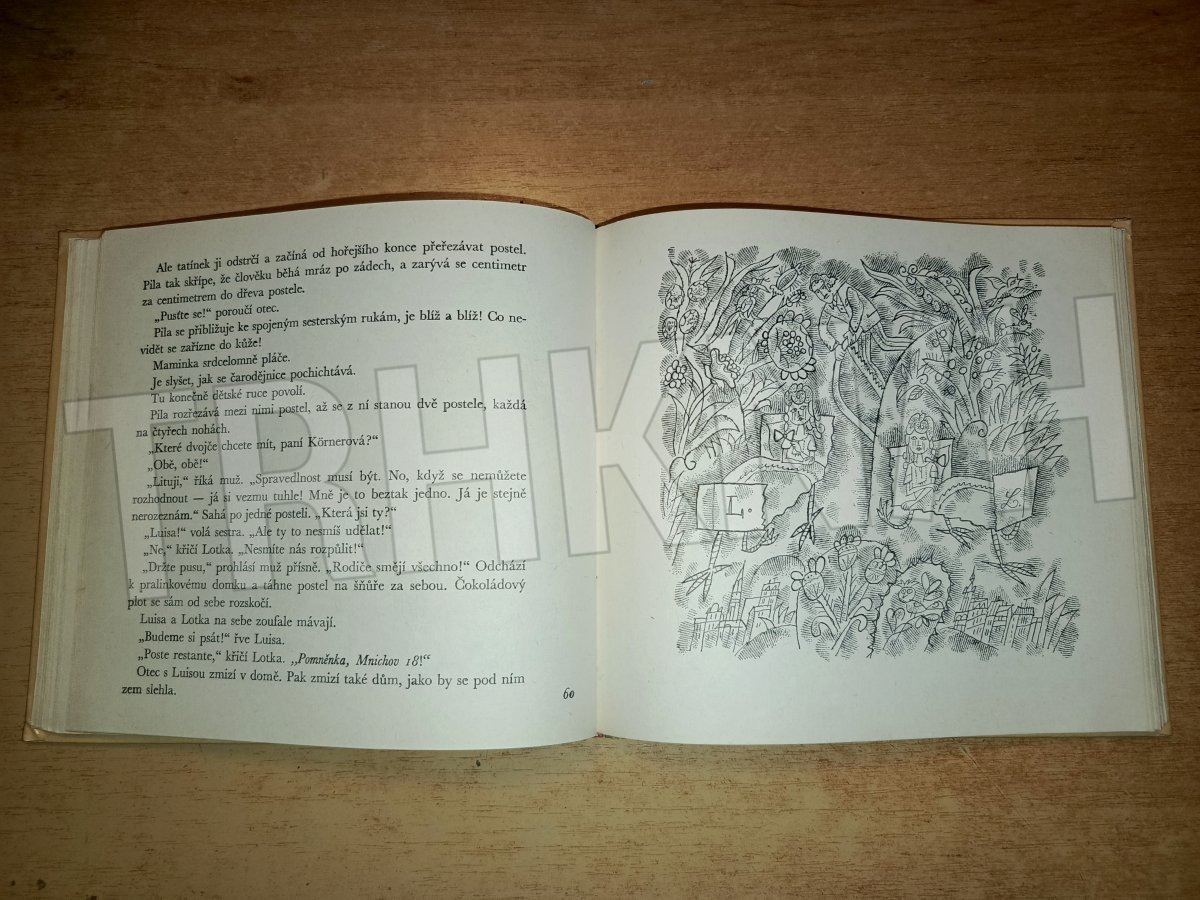 Ale tatínek ji odstrčí a začíná od hořejšího konce přeřezávat postel.
Pila tak skřípe, že člověku běhá mráz po zádech, a zarývá se centimetr
za centimetrem do dřeva postele.
„Pusťte se!“ poroučí otec.
Pila se přibližuje ke spojeným sesterským rukám, je blíž a blíž! Co ne-
vidět se zařízne do kůže!
Maminka srdcelomně pláče.
Je slyšet, jak se čarodějnice pochichtává.
Tu konečně dětské ruce povolí.
Pila rozřezává mezi nimi postel, až se z ní stanou dvě postele, každá
na čtyřech nohách.
„Které dvojče chcete mít, paní Körnerová?“
„Obě, obě!“
„Lituji,“ říká muž. „Spravedlnost musí být. No, když se nemůžete
rozhodnout — já si vezmu tuhle! Mně je to beztak jedno. Já je stejně
nerozeznám.“ Sahá po jedné posteli. „Která jsi ty?“
„Luisa!“ volá sestra. „Ale ty to nesmíš udělat!“
„Ne,“ křičí Lotka. „Nesmíte nás rozpůlit!“
„Držte pusu,“ prohlásí muž přísně. „Rodiče smějí všechno!“ Odchází
k pralinkovému domku a táhne postel na šňůře za sebou. Čokoládový
plot se sám od sebe rozskočí.
Luisa a Lotka na sebe zoufale mávají.
„Budeme si psát!“ řve Luisa.
„Poste restante,“ křičí Lotka. „Pomněnka, Mnichov 18!“
Otec s Luisou zmizí v domě. Pak zmizí také dům, jako by se pod ním
zem slehla.
60
L.
L.